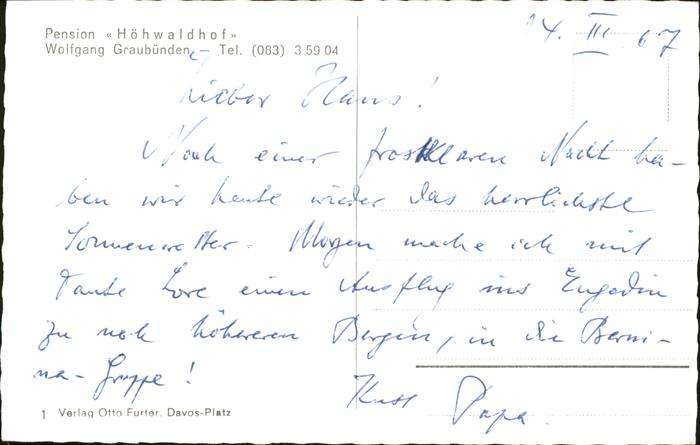 Pension «Höhwaldhof»
Wolfgang Graubünden – Tel. (083) 3 59 04
14. III. 67
Lieber Hans!
Nach einer frostklaren Nacht ha-
ben wir heute wieder das herrlichste
Sonnenwetter. Morgen mache ich mit
Tante Lore einen Ausflug ins Engadin
zu noch höheren Bergen, in die Berni-
na-Gruppe!
Papa.
1 Verlag Otto Furter, Davos-Platz